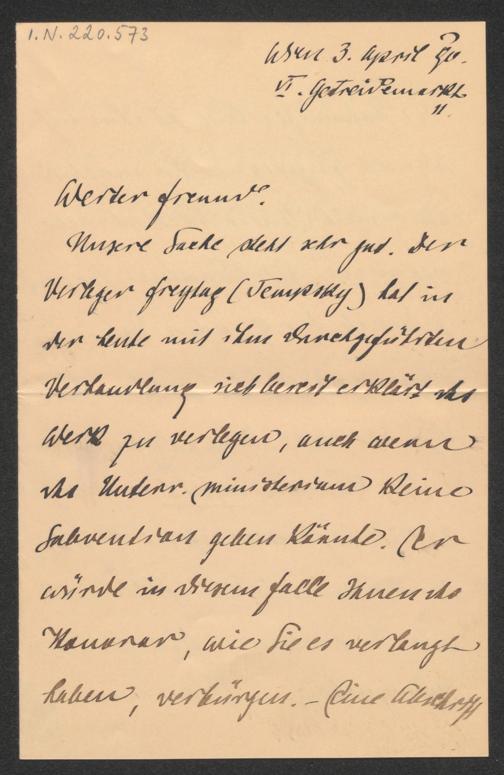 I.N. 220.573
Wien 3. April 90.
VI. Getreidemarkt
11.
Werter Freund.
Unsere Sache steht sehr gut. Der
Verleger Freytag (Tempsky) hat in
der heute mit ihm durchgeführten
Verhandlung sich bereit erklärt das
Werk zu verlegen, auch wenn
das Unterr. ministerium keine
Subvention geben könnte. Er
würde in diesem Falle Ihnen das
Honorar, wie Sie es verlangt
haben, verbürgen. – Eine Abschrift